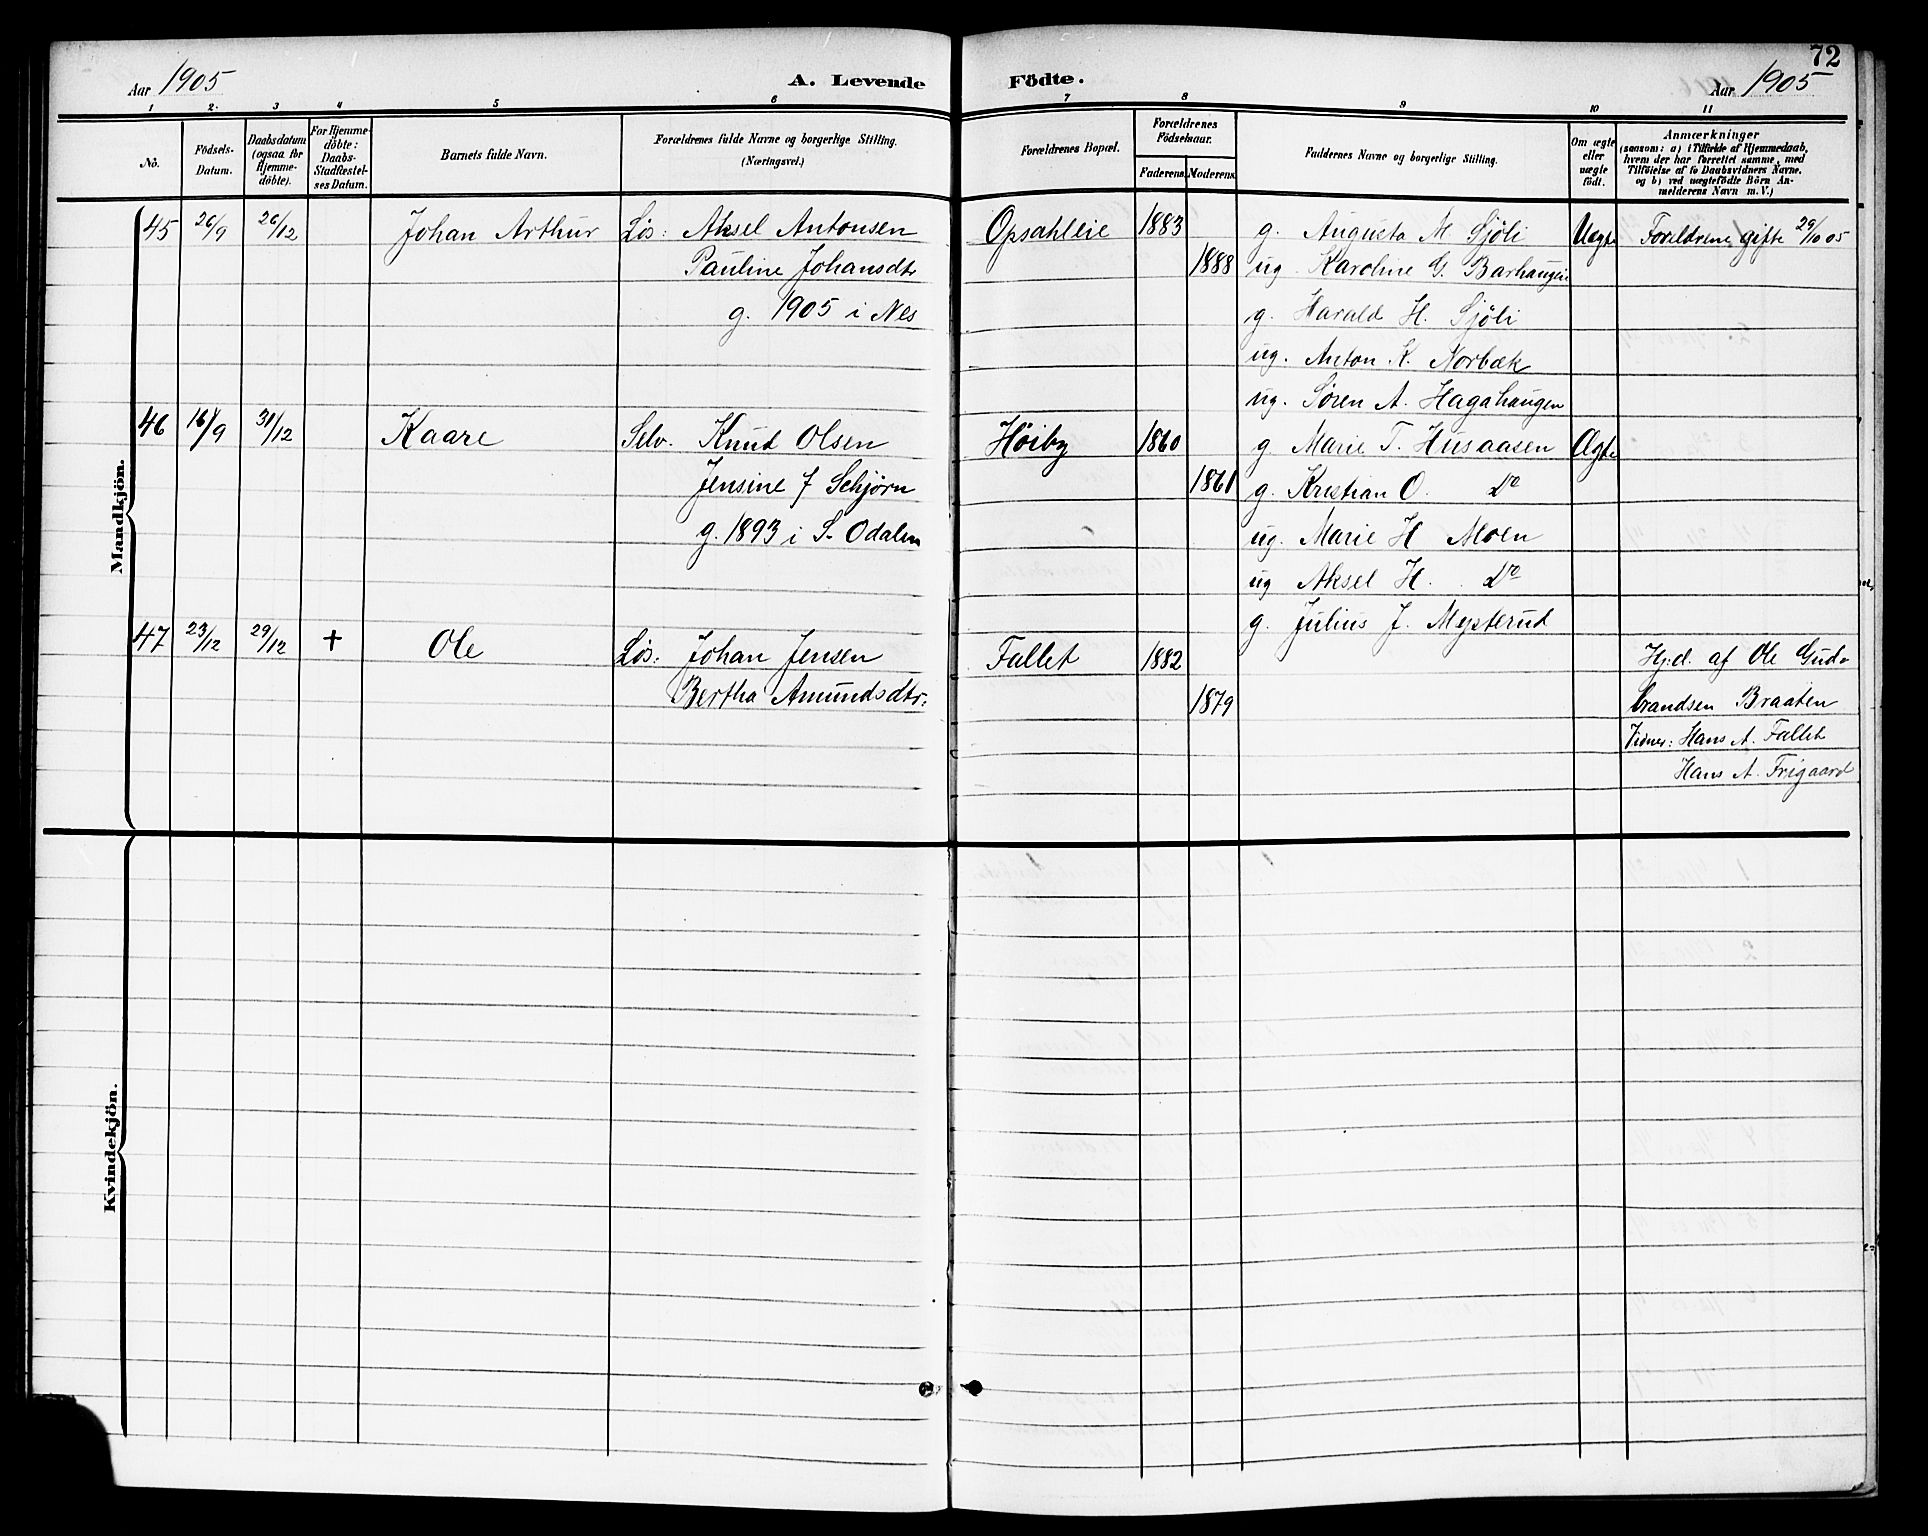 72
Aar 1905 A. Levende Födte. Aar 1905
1 2. 3 4 5 6 7 8 9 10 11
No. Födsels-Datum. Daabsdatum (ogsaa for Hjemme-döbte). For Hjemme-döbte: Daabs-Stadfæstel-ses Datum. Barnets fulde Navn. Forældrenes fulde Navne og borgerlige Stilling. (Næringsvei.) Forældrenes Bopæl. Forældrenes Födselsaar. Faderens. Moderens. Faddernes Navne og borgerlige Stilling. Om ægte eller uægte födt. Anmærkninger (saasom: a) i Tilfælde af Hjemmedaab, hvem der har forrettet samme, med Tilföielse af to Daabsvidners Navne. og b) ved uægtefödte Börn An-melderens Navn m. V.)
Mandkjön.
45 26/9 26/12 Johan Arthur Løs: Aksel Antonsen Opsahleie 1883 g. Augusta M Sjöli Uegte Foreldrene gifte 29/10 05
Pauline Johansdtr 1888 ug. Karoline G. Barhaugeie
g. 1905 i Nes g. Harald H. Sjöli
ug. Anton K. Norbæk
ug. Søren A. Hagahaugen
46 16/9 31/12 Kaare Selv. Knud Olsen Höiby 1860 g Marie T. Husaasen Ægte
Jensine J Schjørn 1861 g. Kristian O. Do
g. 1893 i S. Odalen ug. Marie H Moen
ug Aksel H. Do
g. Julius J. Mysterud
47 23/12 29/12 + Ole Løs: Johan Jensen Fallet 1882 Hj.d. af Ole Gud-
Bertha Amundsdtr: 1879 brandsen Braaten
Vidner: Hans A. Fallet
Hans A. Frigaard
Kvindekjön.